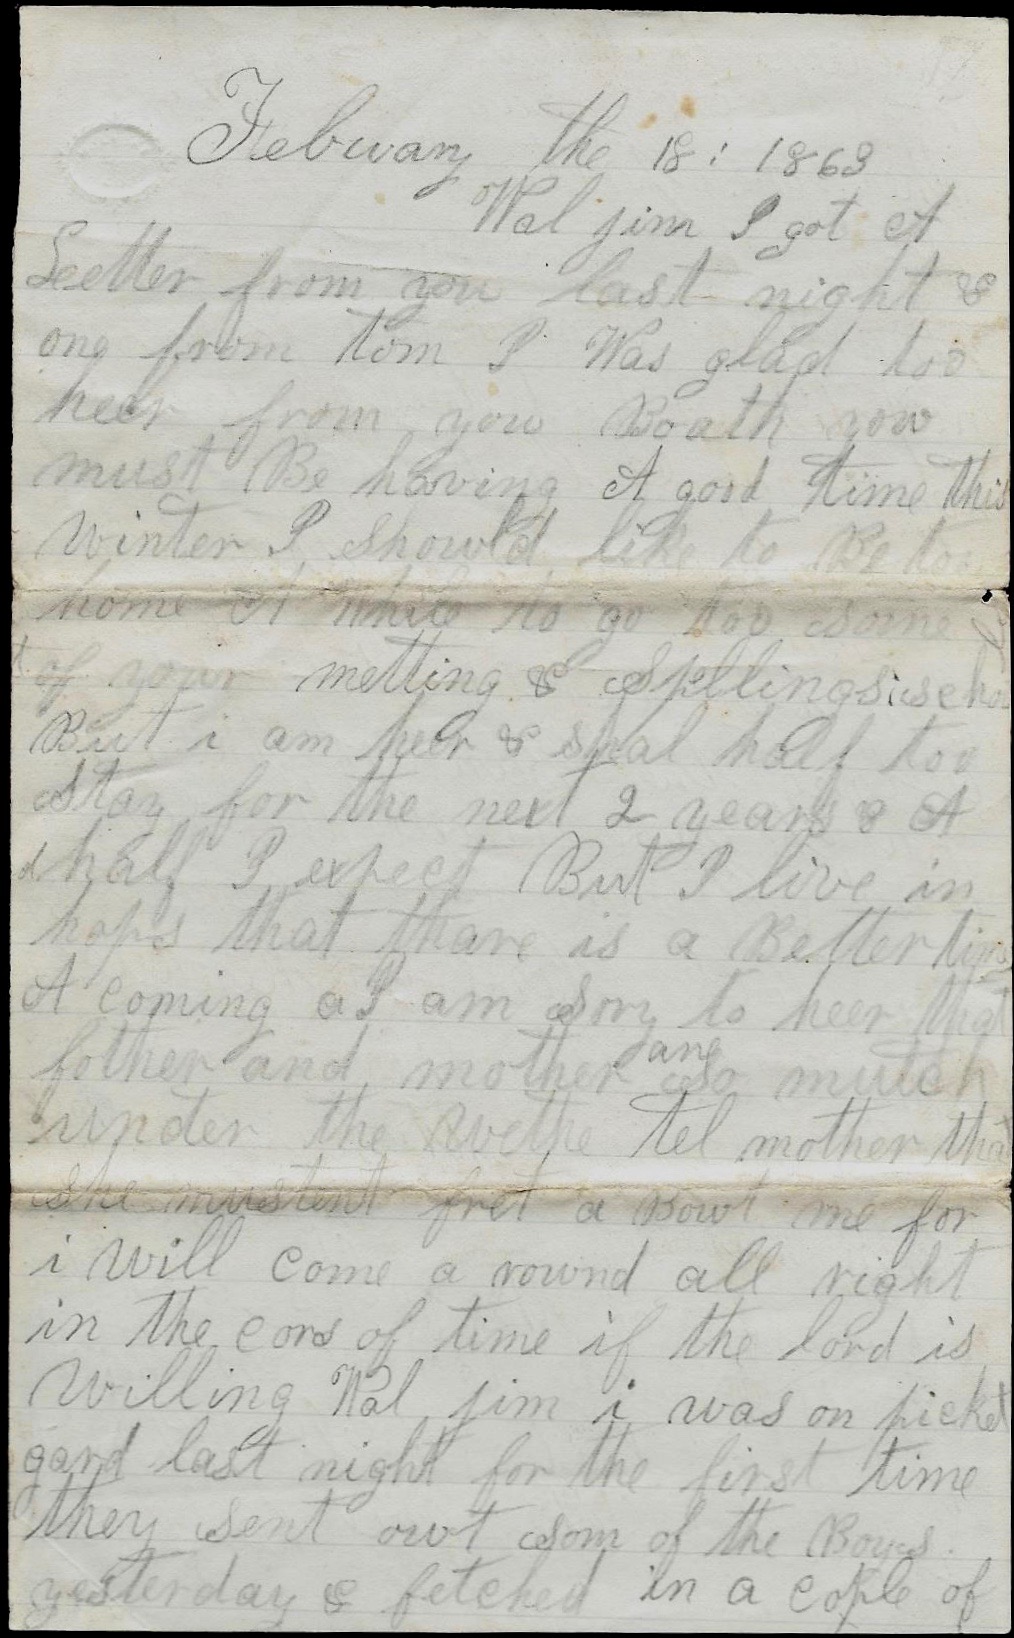 Febuary the 18: 1863
Wal jim I got A
Letter from you last night &
one from tom I Was glad too
heer from you Boath yow
must Be having A good time this
winter I showld like to Be to
home A while to go too some
of your metting & Spllings scho
But i am heer & shal half too
Stay for the next 2 years & A
half I expect But I live in
hops that thare is a Better time
A coming a I am sory to heer that
father and mother are So mutch
under the wethe tel mother that
she mustent fret a Bowt me for
i will come a rownd all right
in the cors of time if the lord is
willing Wal jim i was on picket
gard last night for the first time
they sent owt som of the Boys
yesterday & fetched in a cople of